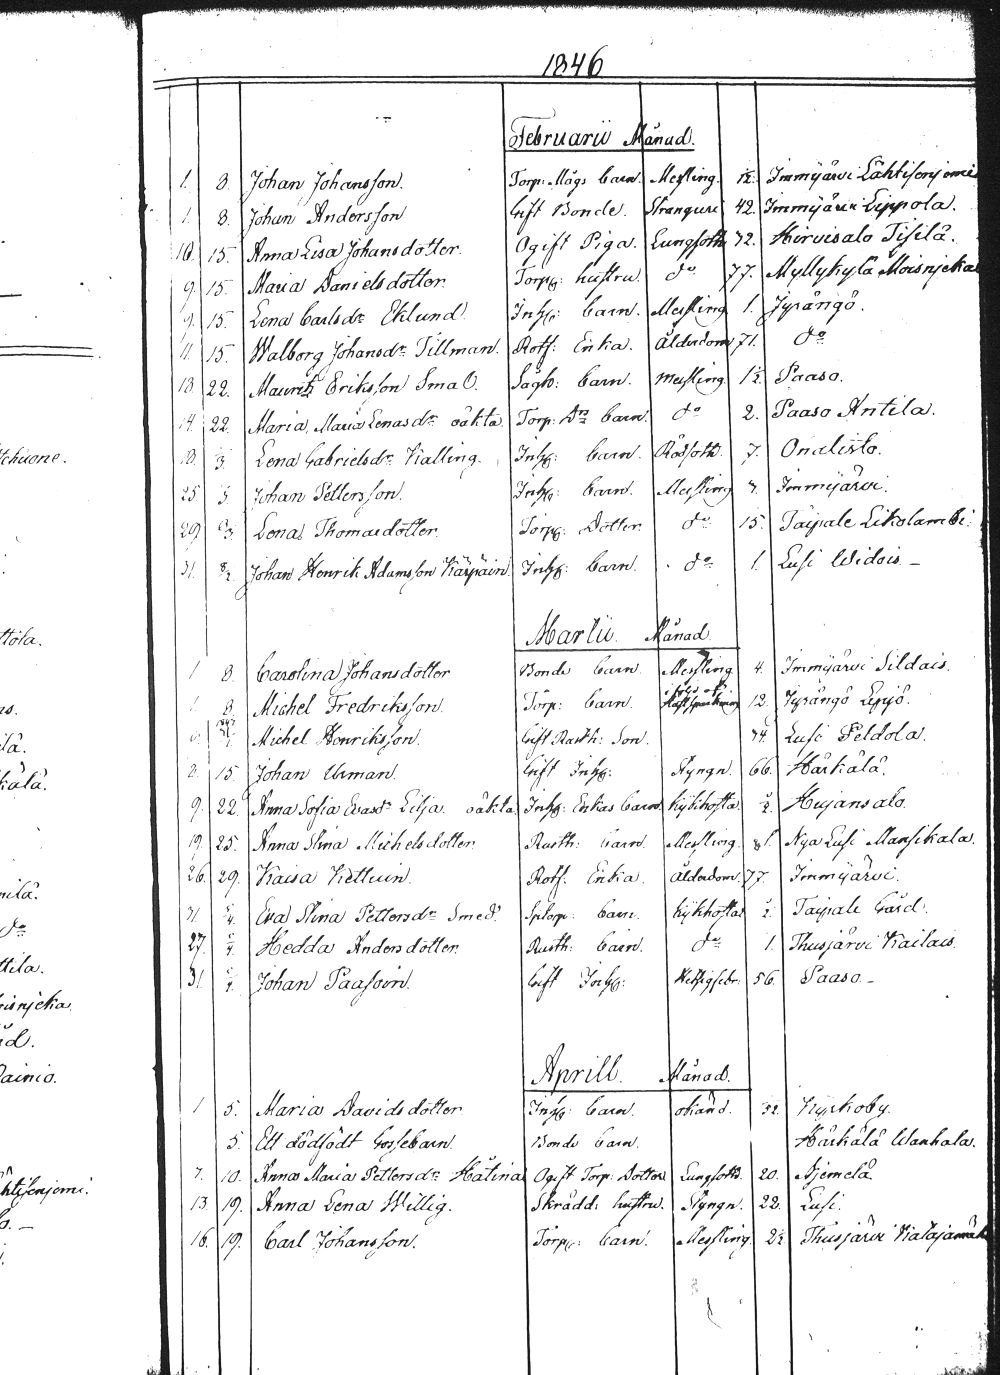 1846
Februarii Månad.
1. 8. Johan Johansson. Torp: Mågs barn. Messling. Immijärvi
1. 8. Johan Andersson Gift Bonde. Stranguri 42. Immijärvi Eippola.
10. 15. Anna Lisa Johansdotter. Ogift Piga. Lungsoth 72. Hirvisalo Tisilä.
9. 15. Maria Danielsdotter. Torpg: hustru. do 77. Myllykylä Moisnjeka
9. 15. Lena Carlsdr Eklund. Inhg: barn. Messling 1. Jyrängö.
11. 15. Walborg Johansdr Tillman. Rotf: Enka. Ålderdom 71. do
13. 22. Mauritz Eriksson Smal. Sågk: barn. Messling 1½ Paaso.
14. 22. Maria, Maria Lenasdr oäkta. Torp: Drs barn. do 2. Paaso Antila.
18. Lena Gabrielsdr Kalling. Inhg: barn. Rödsoth 7. Onalisto.
25 Johan Pettersson. Inhg: barn. Messling 7. Immijärvi.
29 Lena Thomasdotter. Torpg: Dotter do 15. Taipale Likolambi.
31. Johan Henrik Adamsson Kärpäin. Inhg: barn. do 1. Lusi Widois. –
Martii. Månad.
1 8. Carolina Johansdotter Bonde barn Messling 4. Immijärvi Sildais.
1. 8. Michel Fredriksson. Torp: barn. 12. Jyrängö Eepjö.
Michel Henriksson. Gift Rusth: Son. 74. Lusi Peldola.
2. 15. Johan Urman. Gift Inhg: Styngn. 66. Härkälä.
9. 22. Anna Sofia Evasdr Lilja oäkta Inhg: Enkas barn Kykhosta ½ Hujansalo.
19. 25. Anna Stina Michelsdotter Rusth: barn. Messling. Nya Lusi Mansikala.
26. 29. Kaisa Kettuin. Rotf: Enka. Ålderdom. 77. Immijärvi.
31. 5/4. Eva Stina Pettersdr Smed. Sptorp: barn. Kykhosta ½. Taipale Gård.
27. 5/4. Hedda Andersdotter Rusth: barn. do 1. Thusjärvi Kailais.
31. 5/4. Johan Paasoin. Gift Inhg: 56. Paaso. –
Aprill. Månad.
1 5. Maria Davidsdotter Inhg: barn. okänd. Kyrkoby.
5. Ett dödfödt Gossebarn. Bonde barn. Härkälä Wanhala.
7. 10. Anna Maria Pettersdr Hätinä Ogift Torp: Dotter Lungsoth. 20. Njemelä
13. 19. Anna Lena Willig. Skrädd: hustru. Styngn. 22. Lusi.
16. 19. Carl Johansson. Torpg: barn. Messling. 2½ Thusjärvi
kälä.
do
ttila.
isnjeka.
ainio.